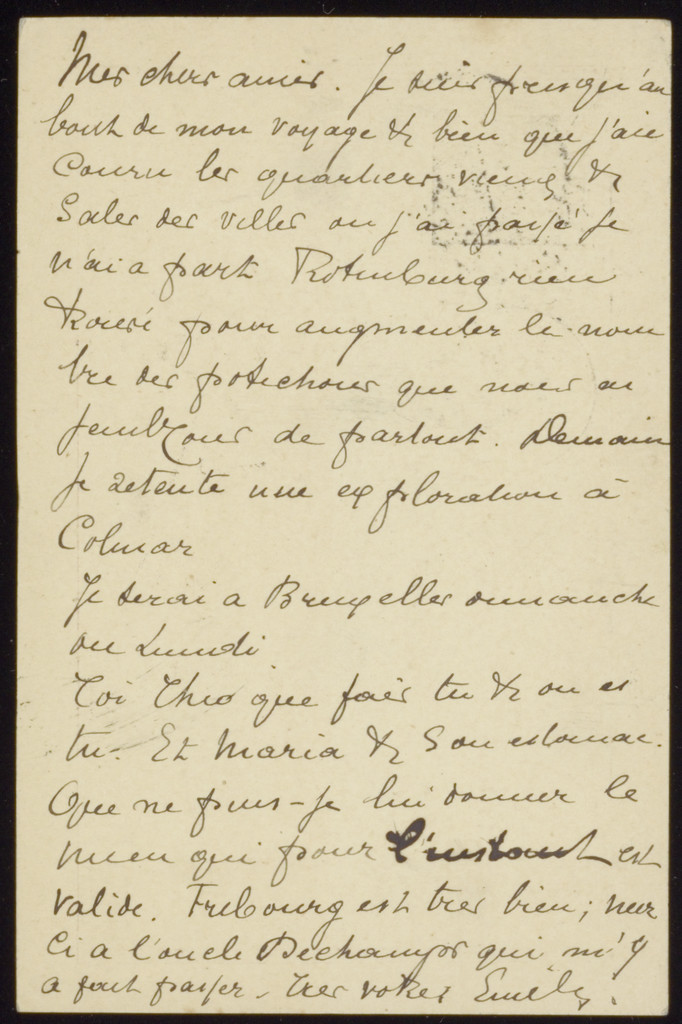 Mes chers amis. Je suis presqu'au
bout de mon voyage & bien que j'aie
couru les quartiers vieux &
sales des villes ou j'ai passé je
n'ai a part Rotenburg rien
trouvé pour augmenter le nom
bre des potichons que nous
de partout. Demain
je retente une exploration à
Colmar
Je serai a Bruxelles dimanche
ou Lundi
Toi Théo que fais tu & ou es
tu. Et Maria & son estomac.
Que ne puis-je lui donner le
mien qui pour l'instant est
valide. Fribourg est tres bien; mer
ci a l'oncle Dechamps qui m'y
a fait passer. Tres votres